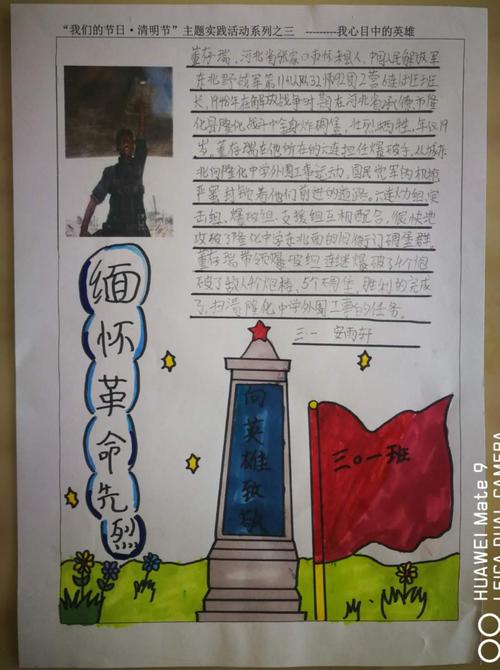 “我们的节日·清明节”主题实践活动系列之三 --------我心目中的英雄
董存瑞，河北省张家口市怀来县人，中国人民解放军
东北野战军第11纵队32师96团2营6连6班班
长，1948年在解放战争时期在河北省承德市隆
化县隆化战斗中舍身炸碉堡，壮烈牺牲，年仅19
岁。董存瑞在他所在的六连担任爆破手，从城东
北向隆化中学外围工事运动，国民党军的机枪
严密封锁着他们前进的道路。六连火力组，突
击组，爆破组，支援组互相配合，很快地
攻破了隆化中学东北面的旧衙门碉堡群。
董存瑞带领爆破组连续爆破了4个炮
了敌人4个炮楼，5个碉堡，胜利的完成
了扫清隆化中学外围工事的任务。
三·一 安雨轩
缅怀革命先烈
向英雄致敬
三〇一班
HUAWEI Mate 9
LEICA DUAL CAMERA